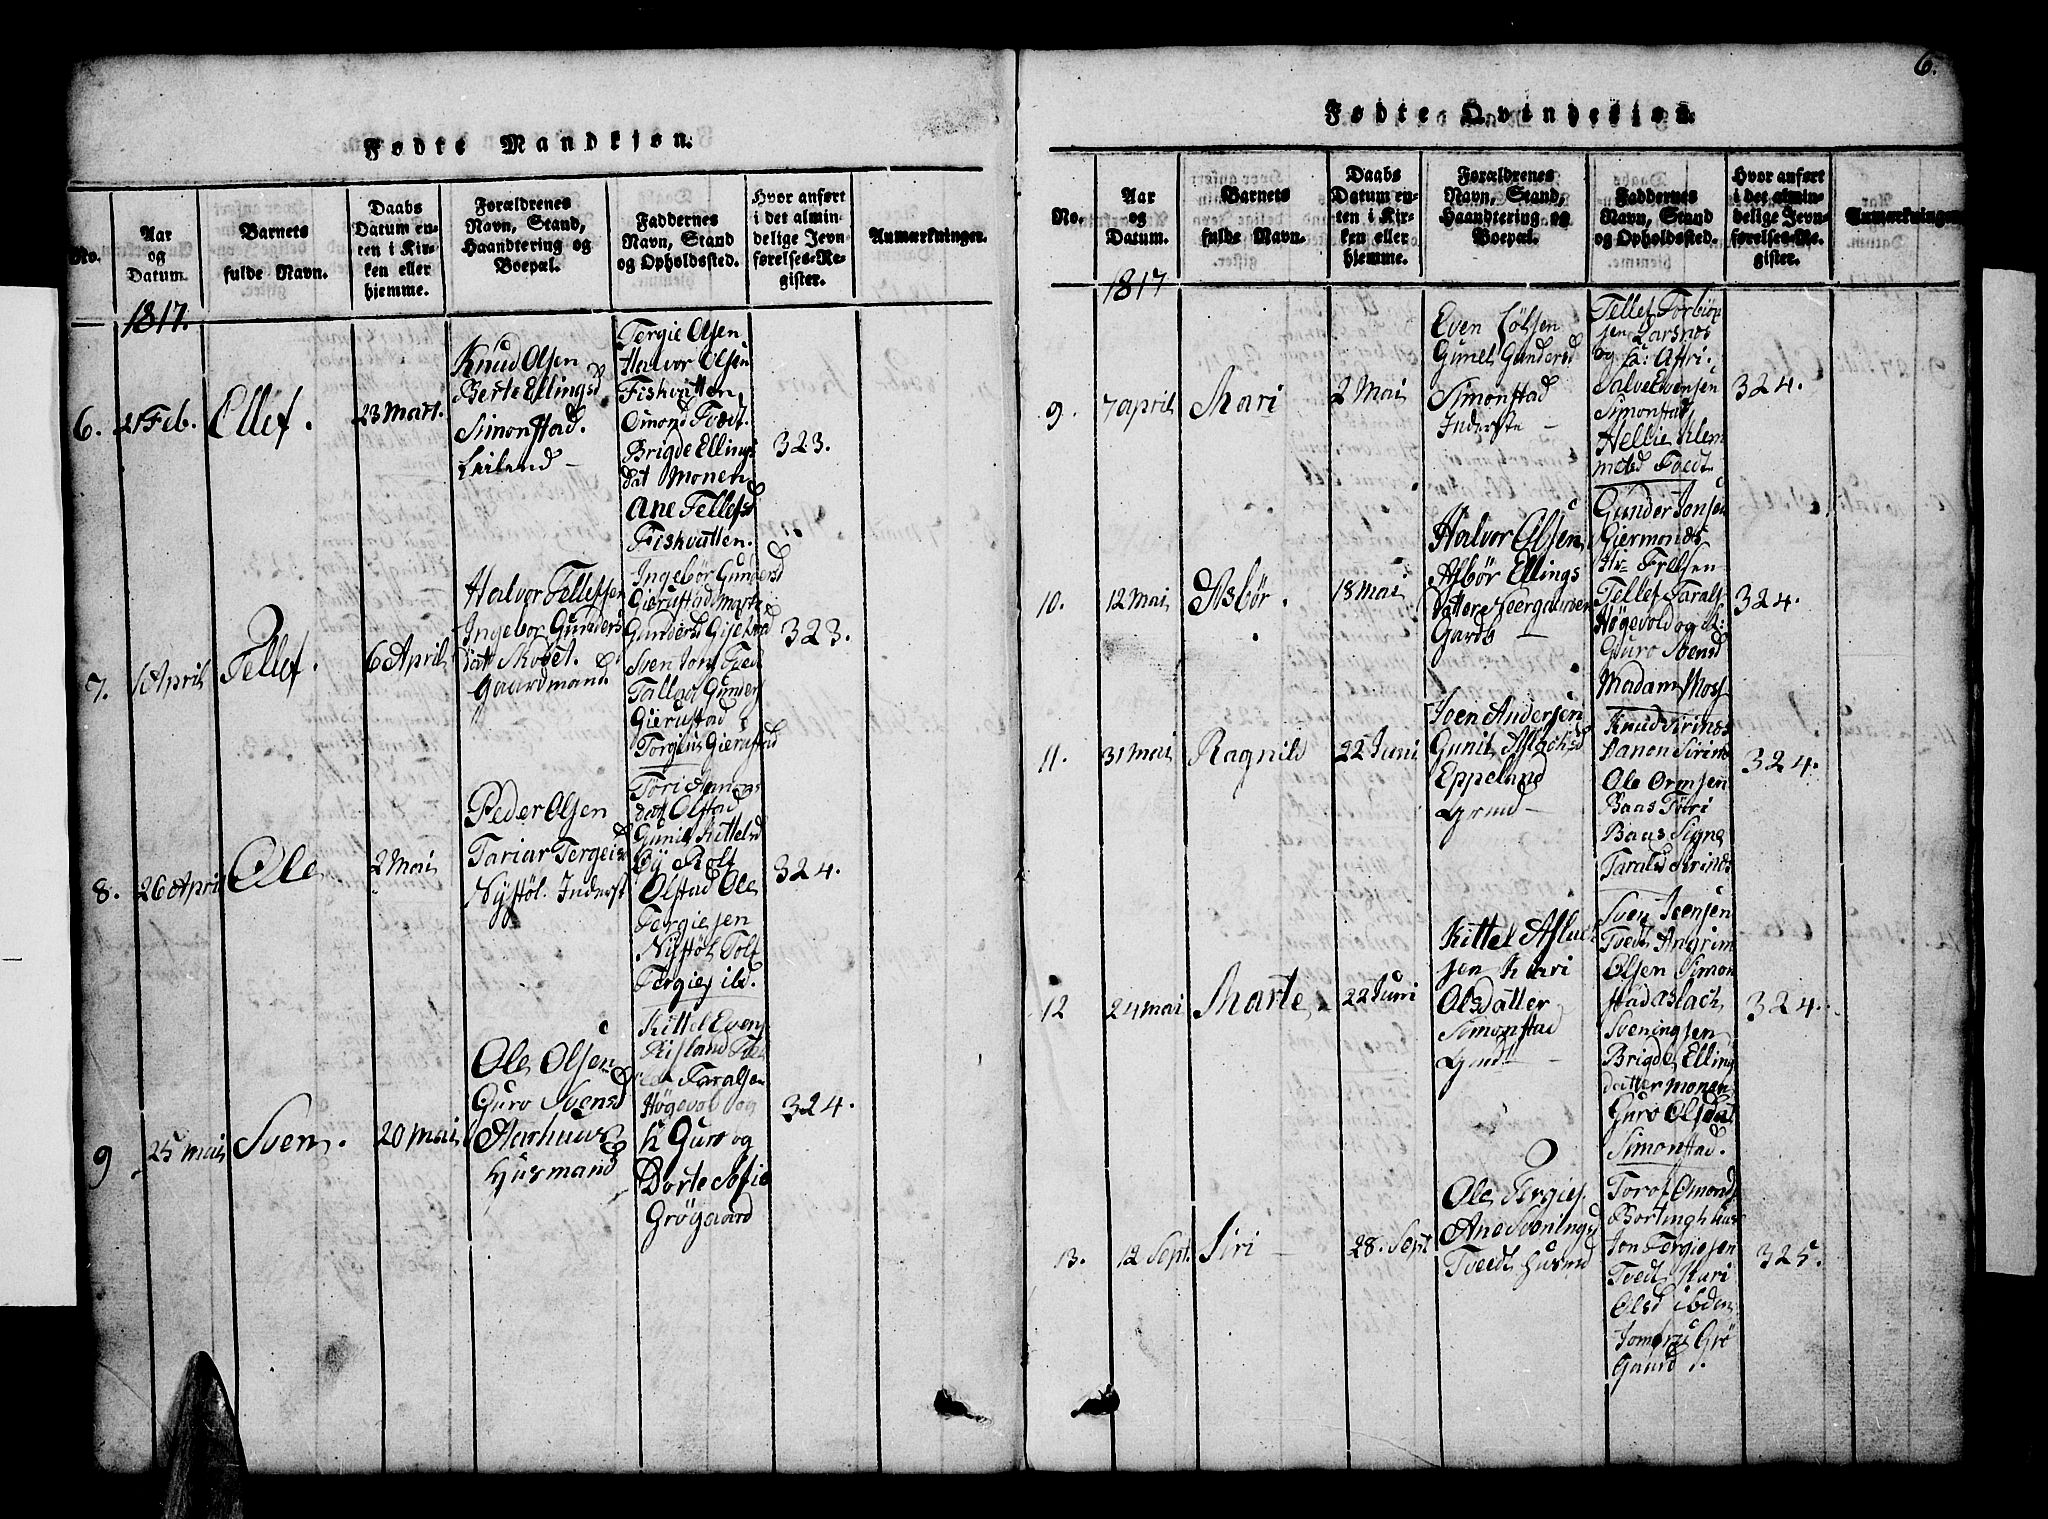 6.
Fødte Mandkjøn.
No.
Aar
og
Datum.
Barnets
fulde Navn.
Daabs
Datum en-
ten i Kir-
ken eller
hjemme.
Forældrenes
Navn, Stand,
Haandtering og
Boepæl.
Faddernes
Navn, Stand
og Opholdssted.
Hvor anført
i det almin-
delige Jevn-
førelses-Re-
gister.
Anmærkninger.
1817.
6.
21 Feb.
Ellef.
23 Mart.
Knud Olsen
Berte Ellingsd
Simonstad.
Leiland –
Tergie Olsen
Halvor Olsen
Fiskvatten
Omond Tvedt.
Brigde Ellings
dat Monen
Ane Tellefsd
Fiskvatten.
323.
7.
April
Tellef.
6 April
Halvor Tellefsen
Ingebor Gunders
datt Skoget.
Gaardmand
Ingebör Gundersd
Gierustad Marte
Gundersd Gierustad
Sven Jons Tved
Tallev Gunders
Gierustad
Torgius Gierustad
323.
8.
26 April
Ole
2 Mai
Peder Olsen
Tariar Tergeisd
Nystöl. Inderst
Töri Aanons
datt Olstad
Gunil Kittelsd
Rolf
Olstad Ole
Tergiesen
Nystöl Tolf
Tergies ibd.
324.
9
25 Mai
Sven.
20 Mai
Ole Olsen
Guro Svensd
Aashuus
Husmand
Kittel Evens
Risland Tel
lef Taralsen
Høgevol og
K Guro og
Dorte Sofie
Grögaard
324.
Fødte Qvindekjøn.
No.
Aar
og
Datum.
Barnets
fulde Navn.
Daabs
Datum en-
ten i Kir-
ken eller
hjemme.
Forældrenes
Navn, Stand,
Haandtering og
Boepæl.
Faddernes
Navn, Stand
og Opholdssted.
Hvor anført
i det almin-
delige Jevn-
førelses-Re-
gister.
Anmærkninger
1817
9.
7 April
Mari
2 Mai
Even
Gunel Gundersd
Simonstad
Inderste –
Tellef Torbiön
sen Larsnæs
og K: Assri.
Salve Evensen
Simonstad
Hellie Klem
metsd Tvedt
324.
10.
12 Mai
Asbör.
18 Mai
Halvor Olsen
Asbör Ellings
datter
Gardb –
Gunder Jonsen
Giermonds
Hr
Tellef Taralds
Høgevold og K:
Guro Svensd
Madam Moss
324.
11.
31 Mai
Ragnild
22 Juni
Joen Andersen
Gunil Aslachsd
Eppeland
Grund –
Knud Sirinæs
Hanon Sirinæs
Ole Ormsen
Baas Töri
Baas Signe
Taralds Sirinæs
324.
12
24 Mai
Marte
22 Juni
Kittel Aslach
sen Kari
Olsdatter
Simonstad
Grund
Sven Joensen
Tvedt Angrim
Olsen Simon
stad Aslach
Sveningsen
Brigde Elling
datter Monen
Guro Olsdat
Simonstad.
324.
13.
12 Sept.
Siri –
28. Sept
Ole Tergies.
Ane Sveningsd
Tvedt Husmd
Torof Omonds
Jon Tergiesen
Tvedt Kari
Olsd ibden
Jomfru Grö
gaard.
325.